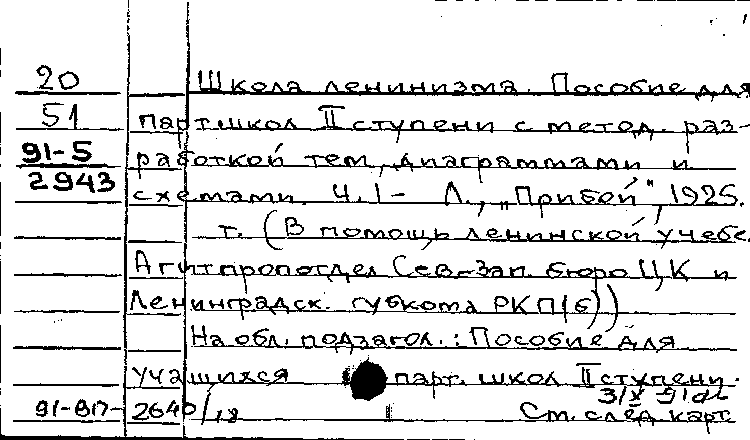 20 Школа ленинизма. Пособие для
51 партшкол II ступени с метод. раз-
91-5 работкой тем, диаграммами и
2943 схемами. Ч. I- Л., „Прибой", 1925.
т. (В помощь ленинской учебе.
Агитпропотдел Сев-Зап. бюро ЦК и
Ленинградск. губкома РКП(б))
На обл. подзагол.: Пособие для
учащихся парт. школ II ступени.
3/X 91
91-В17- 2640/18 См. след карт.